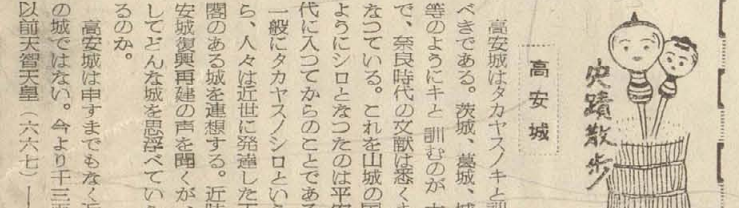 史蹟散歩
高安城
高安城はタカヤスノキと訓
べきである。茨城、葛城、城
等のようにキと訓むのが
で、奈良時代の文献は悉くキ
なつている。これを山城の国
ようにシロとなつたのは平安
代に入つてからのことである
一般にタカヤスノシロという
ら、人々は近世に発達した天
閣のある城を連想する。近時
安城復興再建の声を聞くが、
してどんな城を思浮べてい
るのか。
高安城は申すまでもなく近
の城ではない。今より千三百
以前天智天皇（六六七）―